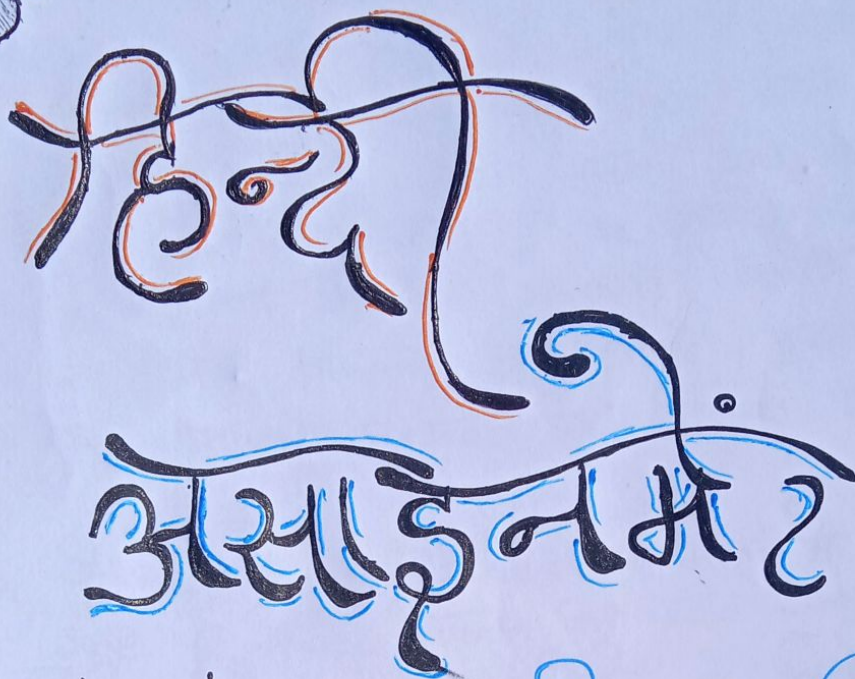 हिन्दी
असाइनमेंट